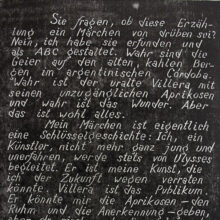 Sie fragen, ob diese Erzäh-
lung ein Märchen von drüben sei?
Nein, ich habe sie erfunden und
als ABC gestaltet. Wahr sind die
Geier auf den alten, kahlen Ber-
gen im argentinischen Córdoba.
Wahr ist der uralte Villera mit
seinen unzugänglichen Aprikosen
und wahr ist das Wunder. Aber
das ist wohl alles.
Mein Märchen ist eigentlich
eine Schlüsselgeschichte: Ich, ein
Künstler, nicht mehr ganz jung und
unerfahren, werde stets von Ulysses
begleitet. Er ist meine Kunst, die
ich der Zukunft weder verraten
könnte. Villera ist das Publikum.
Er könnte mir die Aprikosen – den
Ruhm und die Anerkennung – geben,